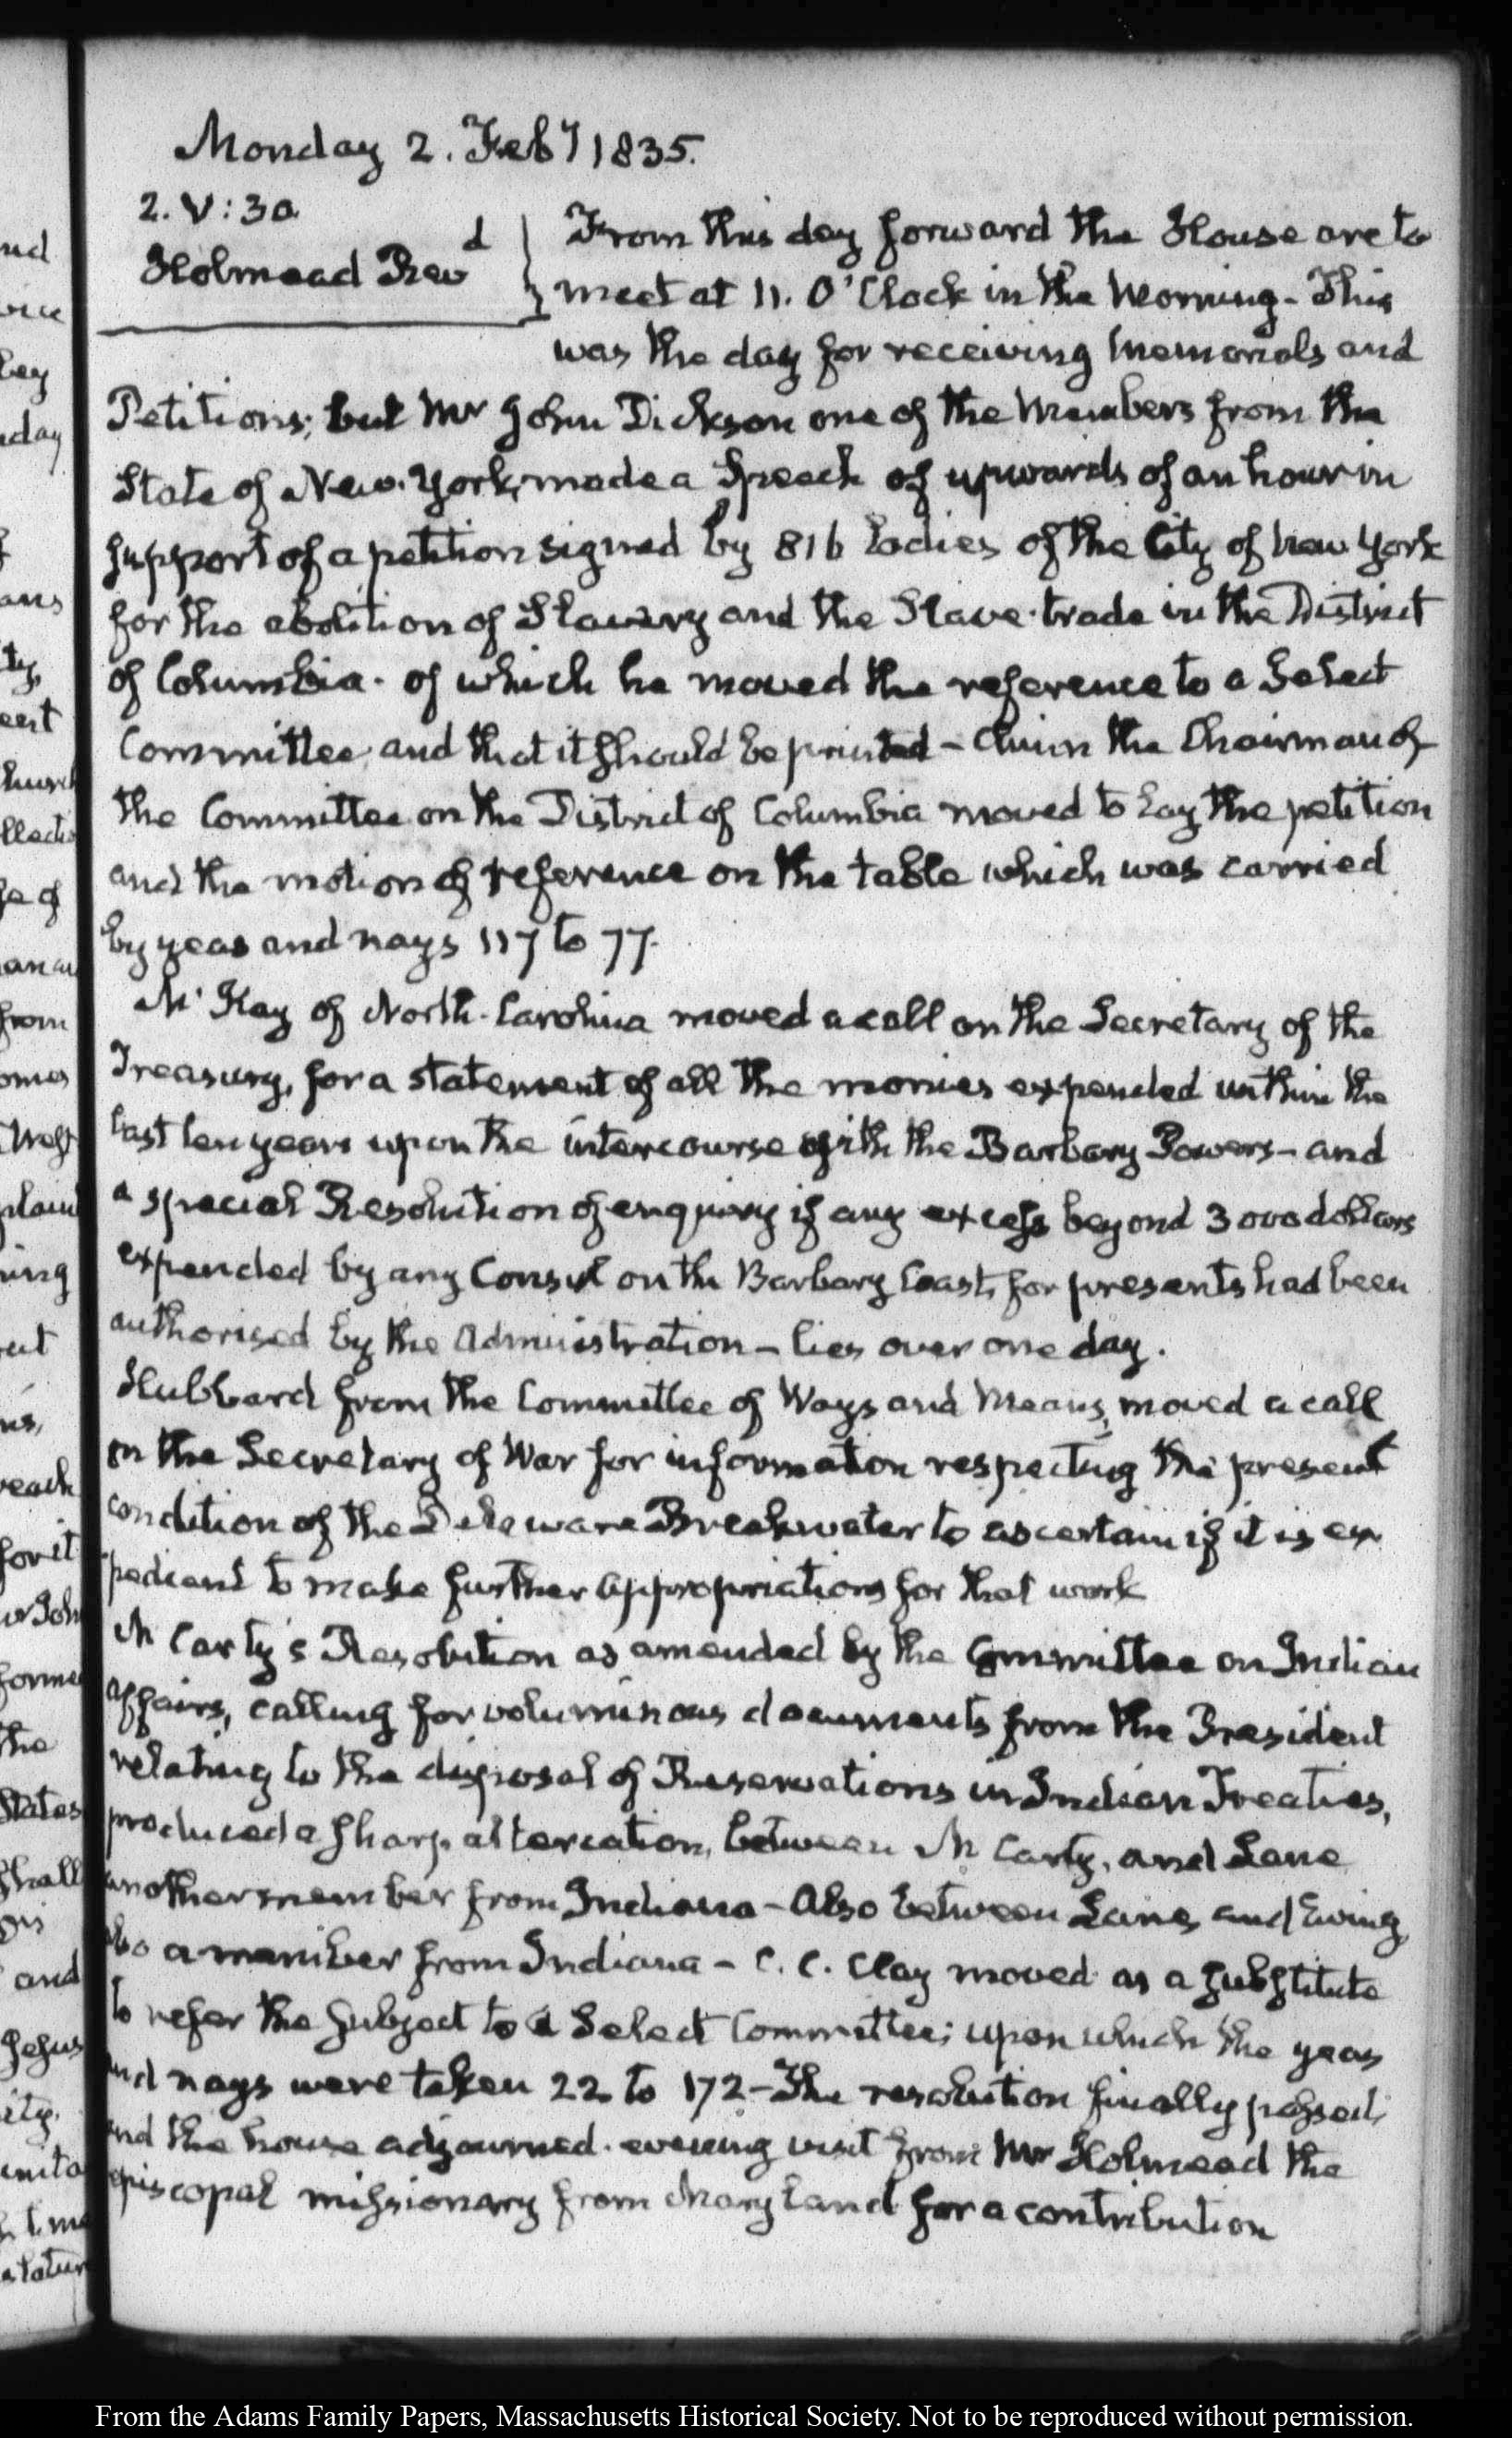 Monday 2. Feby 1835.
2. V:30.
Holmead Revd
From this day forward the House are to
meet at 11. O'Clock in the Morning - This
was the day for receiving Memorials and
Petitions; but Mr John Dickson one of the Members from the
State of New-York, made a Speech of upwards of an hour in
support of a petition signed by 816 Ladies of the City of New York
for the abolition of Slavery and the Slave-trade in the District
of Columbia. of which he moved the reference to a Select
Committee, and that it should be printed - Chinn the Chairman of
the Committee on the District of Columbia moved to lay the petition
and the motion of reference on the table which was carried
by yeas and nays 117 to 77.
McKay of North-Carolina moved a call on the Secretary of the
Treasury, for a statement of all the monies expended within the
last ten years upon the intercourse with the Barbary Powers - and
a special Resolution of enquiry if any excess beyond 3000 dollars
expended by any Consul on the Barbary Coast, for presents had been
authorised by the Administration - lies over one day.
Hubbard from the Committee of Ways and Means, moved a call
on the Secretary of War for information respecting the present
condition of the Delaware Breakwater to ascertain if it is ex
pedient to make further appropriations for that work
McCarty's Resolution as amended by the Committee on Indian
Affairs, calling for voluminous documents from the President
relating to the disposal of Reservations in Indian Treaties,
produced a sharp altercation, between McCarty, and Lane
another member from Indiana - Also between Lane, and Ewing,
also a member from Indiana - C. C. Clay moved as a substitute
to refer the subject to a Select Committee; upon which the yeas
and nays were taken 22 to 172 - The resolution finally passed;
and the house adjourned. evening visit from Mr Holmead the
episcopal missionary from Maryland for a contribution
From the Adams Family Papers, Massachusetts Historical Society. Not to be reproduced without permission.